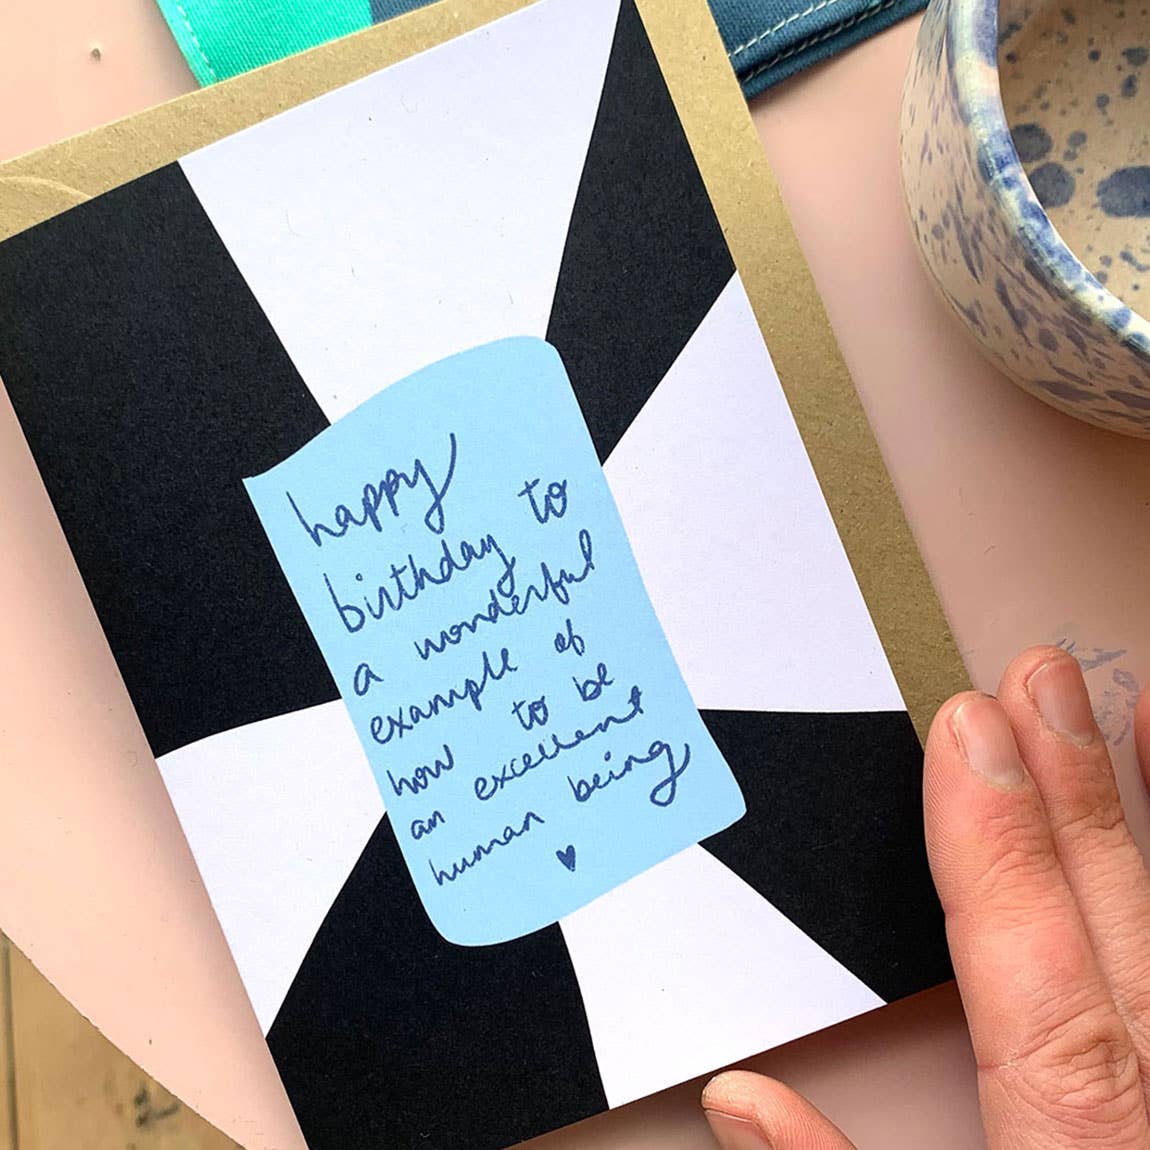 happy
birthday to
a wonderful
example of
how to be
an excellent
human being
♥